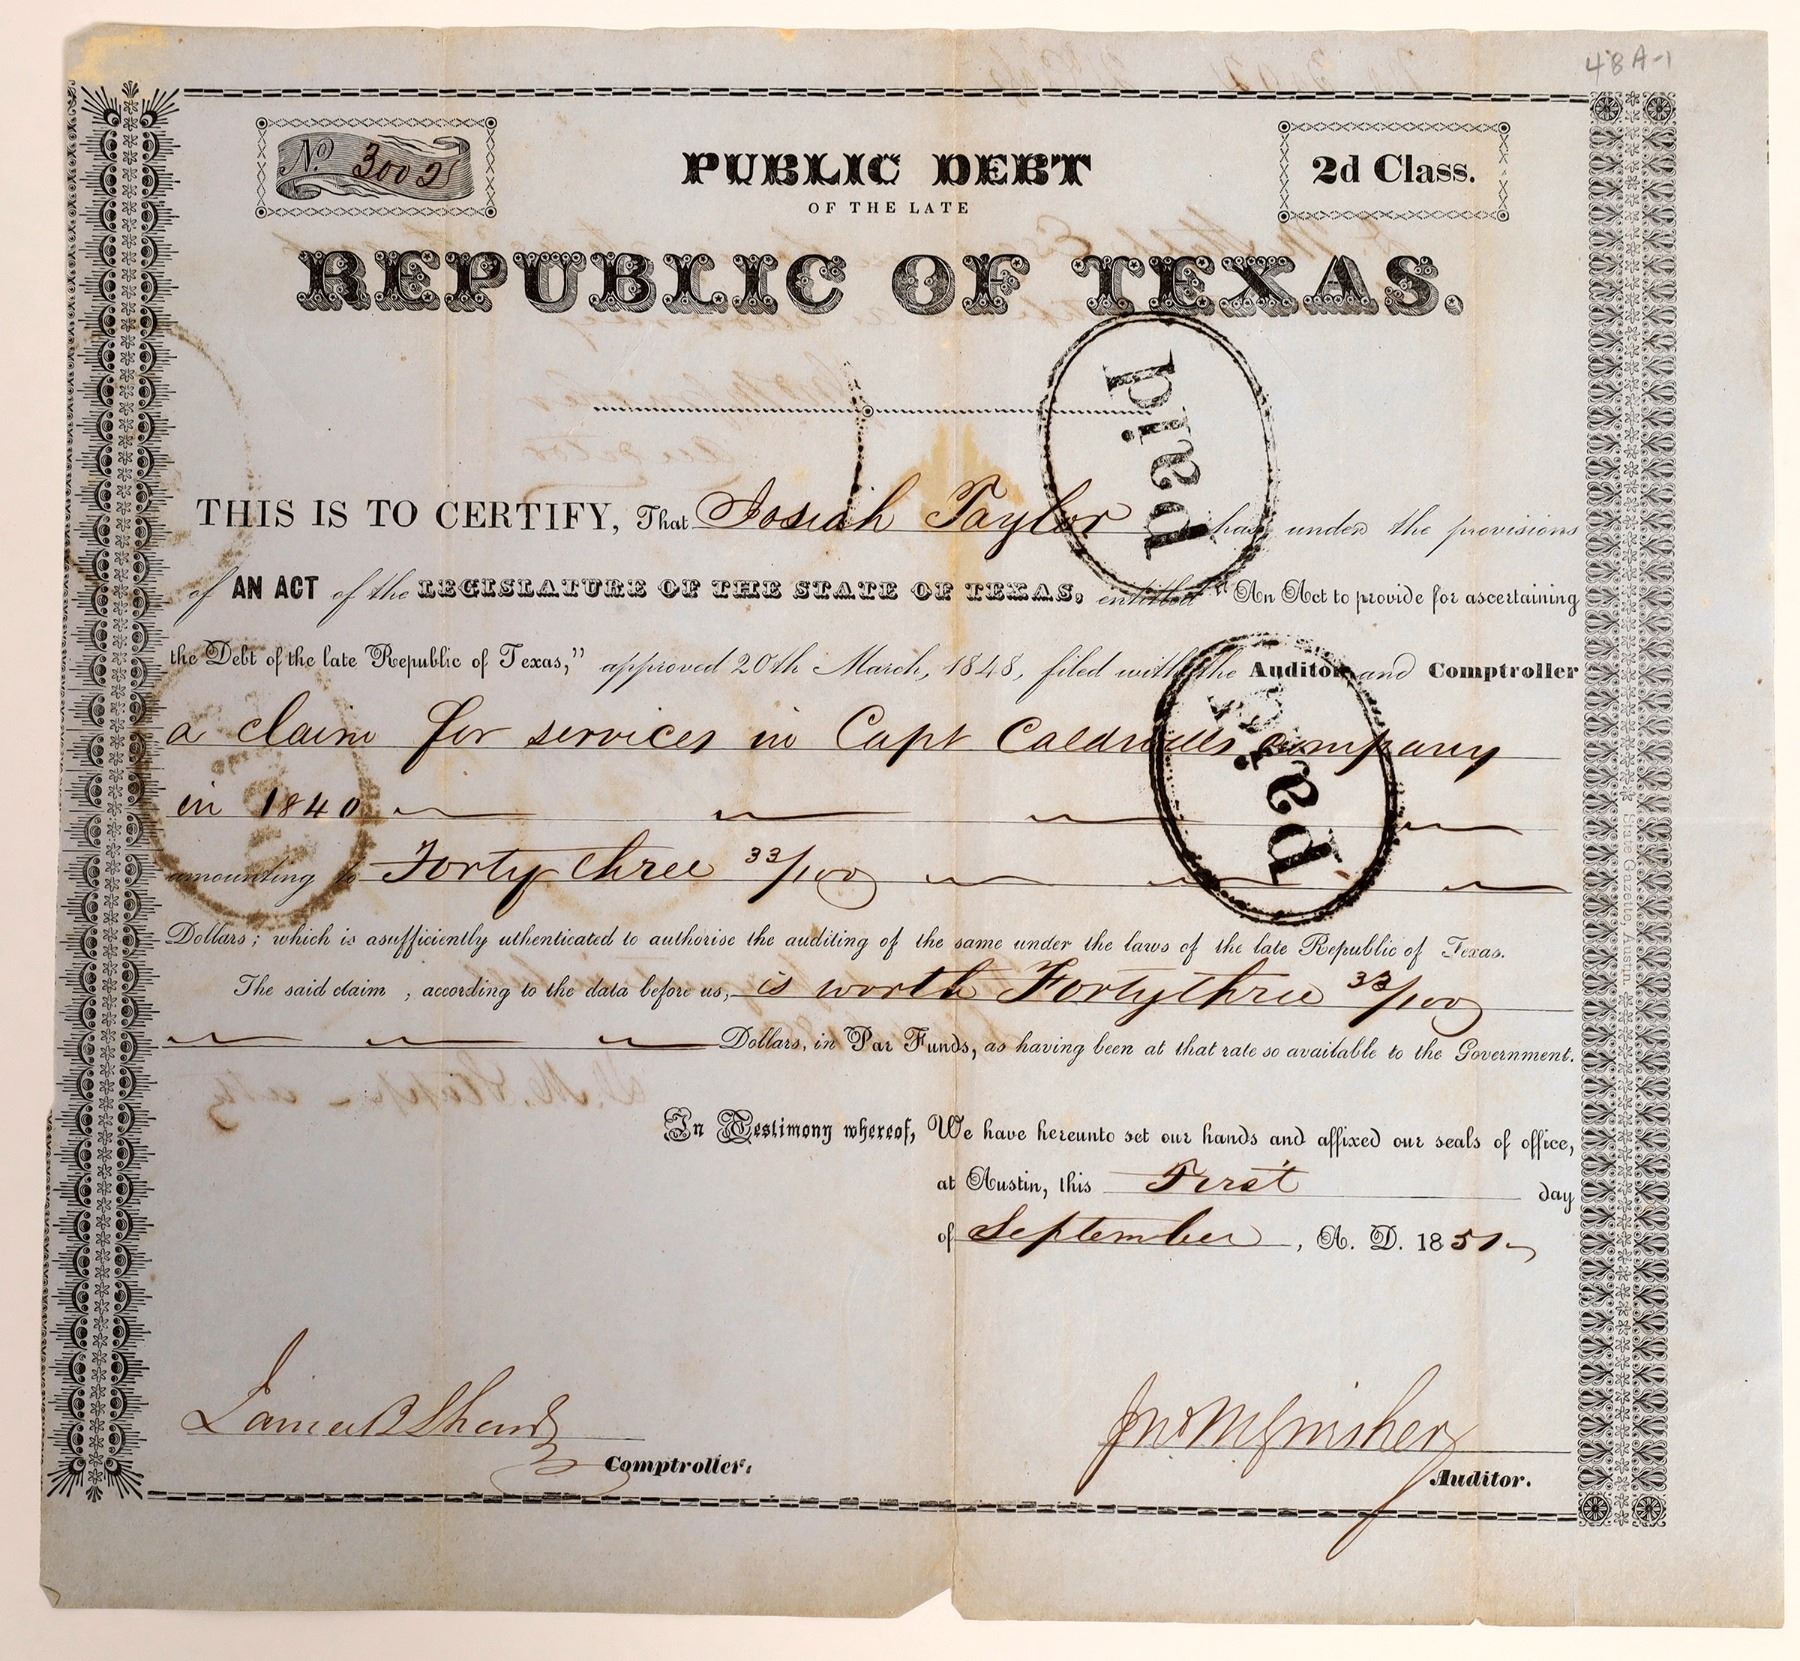 48A-1
No 3002
PUBLIC DEBT
2d Class.
OF THE LATE
REPUBLIC OF TEXAS.
paid
THIS IS TO CERTIFY, That Josiah Taylor has under the provisions
of AN ACT of the LEGISLATURE OF THE STATE OF TEXAS, entitled "An Act to provide for ascertaining
the Debt of the late Republic of Texas," approved 20th March, 1848, filed with the Auditor and Comptroller
a claim for services in Capt Caldwells company
paid
in 1840
amounting to Forty three 33/100
Dollars; which is asufficiently uthenticated to authorise the auditing of the same under the laws of the late Republic of Texas.
The said claim, according to the data before us, is worth Forty three 33/100
Dollars, in Par Funds, as having been at that rate so available to the Government.
In Testimony whereof, We have hereunto set our hands and affixed our seals of office,
at Austin, this First day
of September, A. D. 1851
James B Shaw
Comptroller.
Auditor.
State Gazette, Austin.